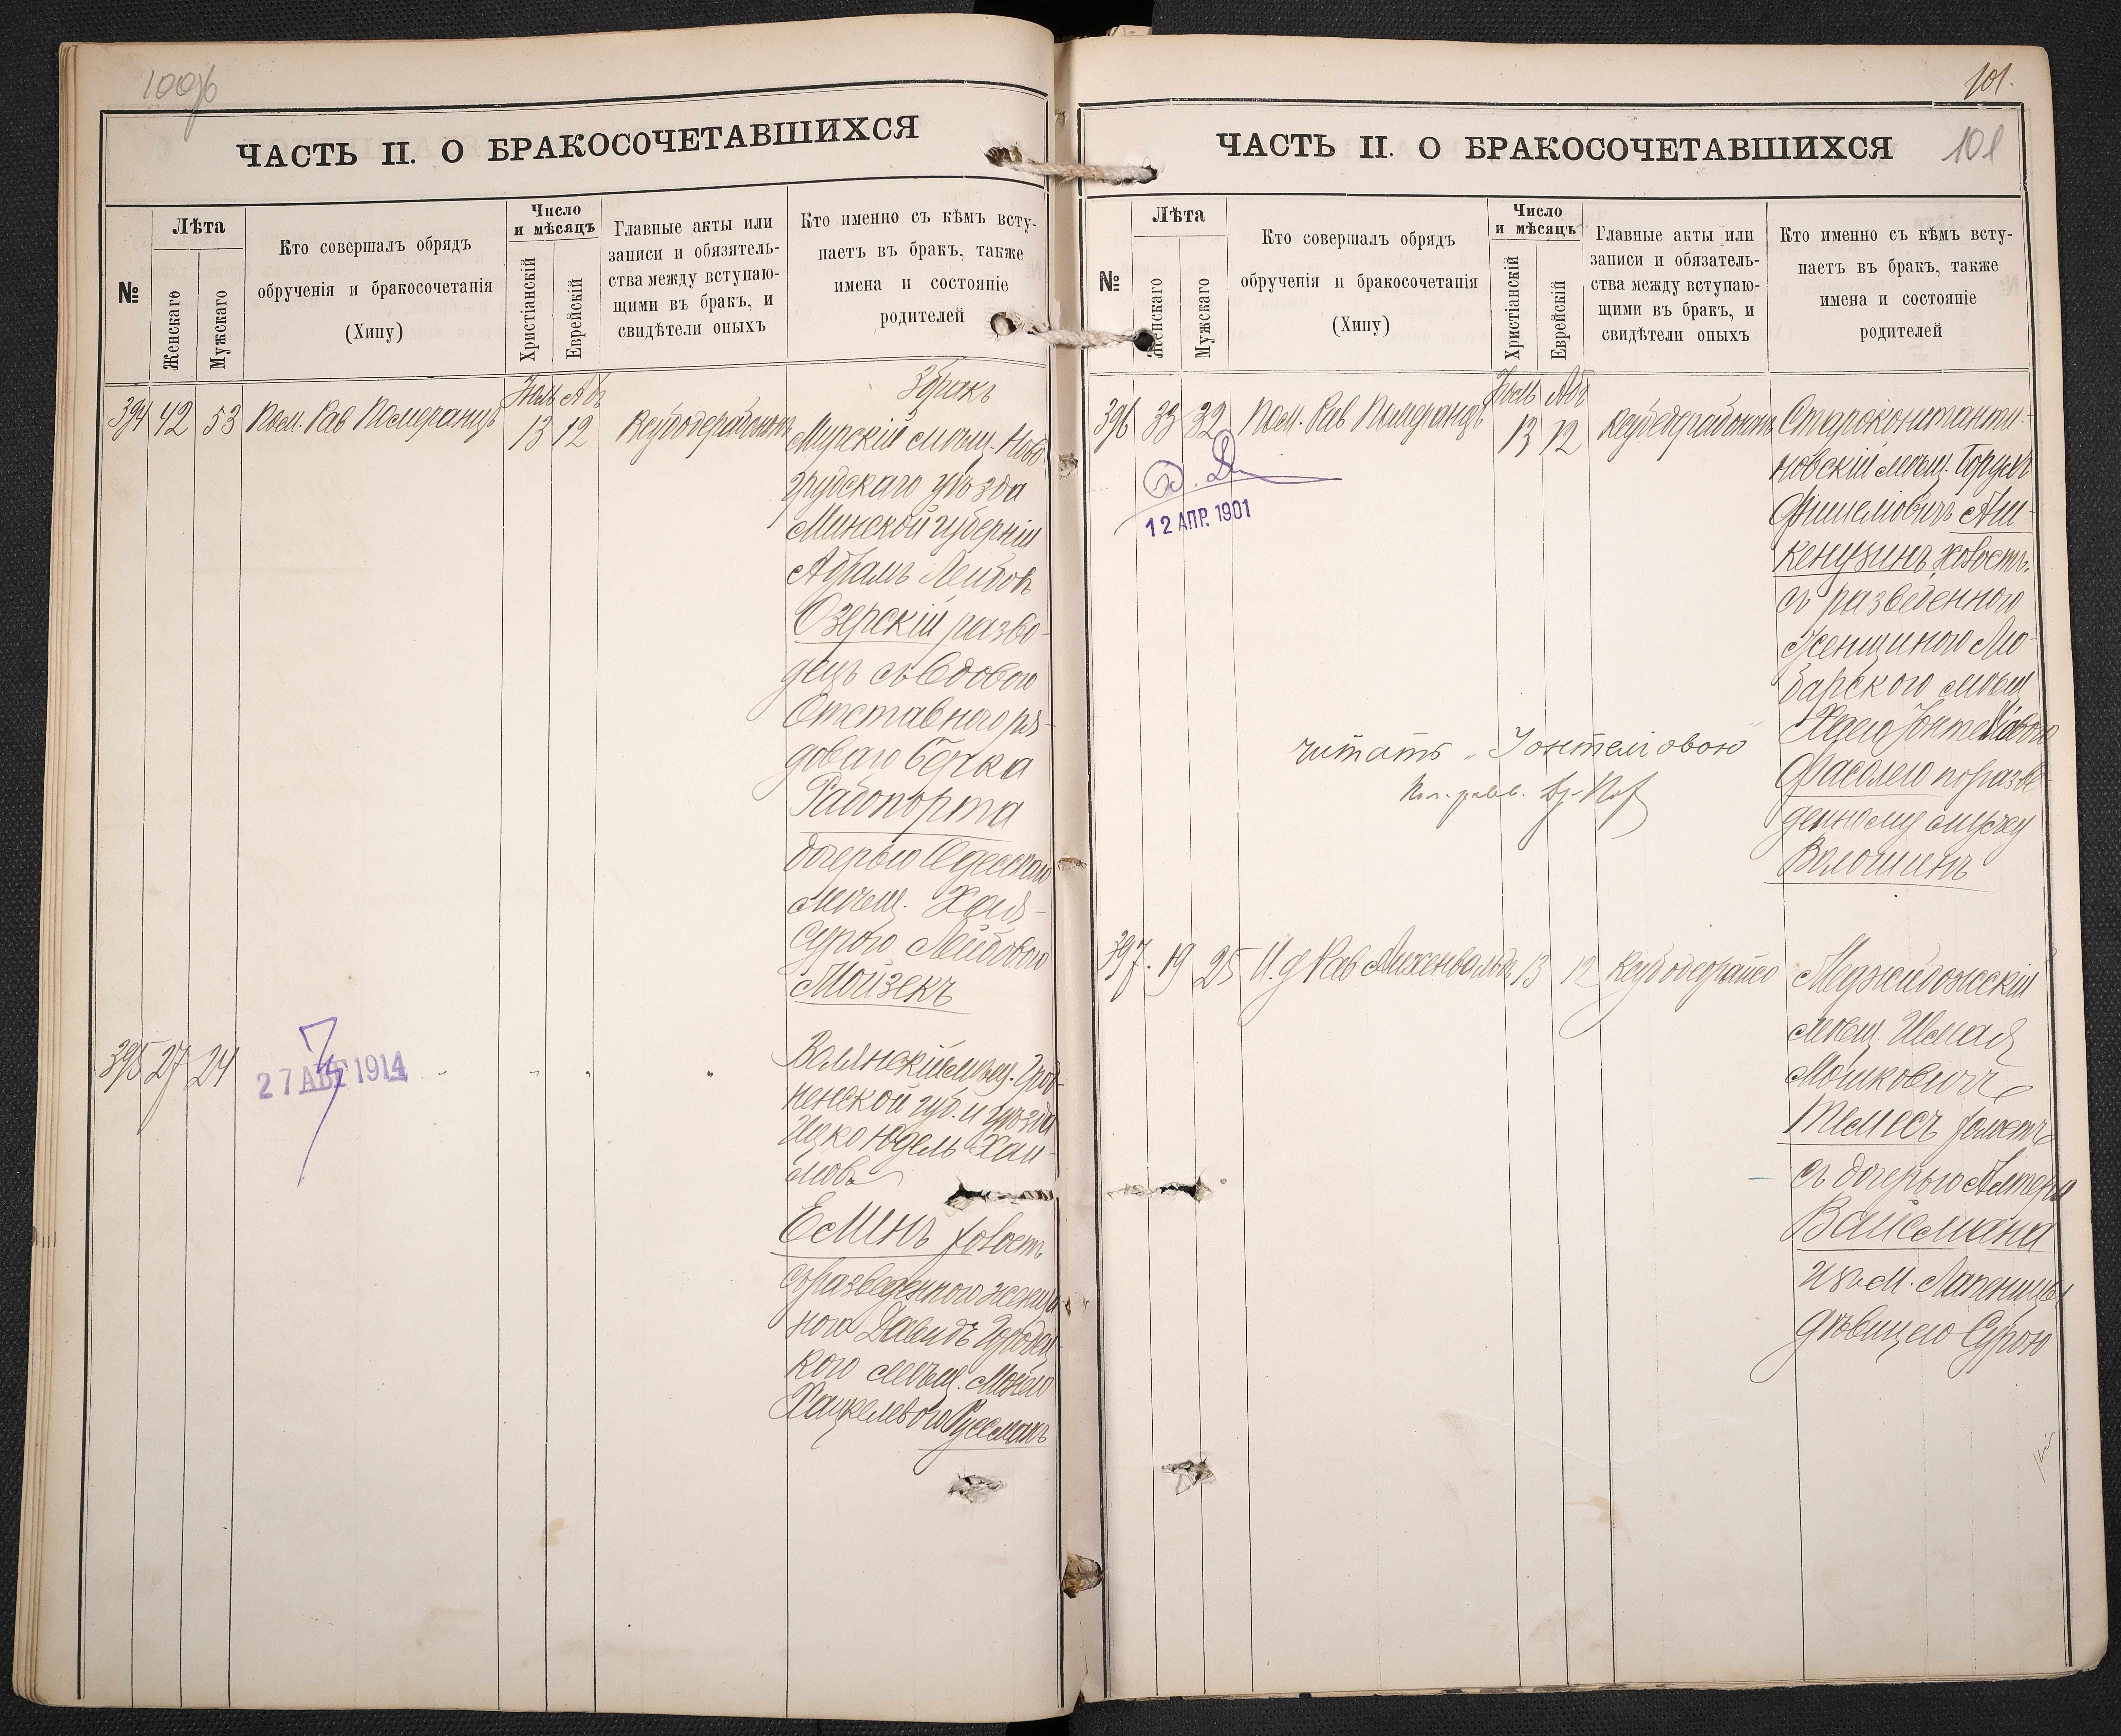 100об
ЧАСТЬ II. О БРАКОСОЧЕТАВШИХСЯ
№
Лѣта
Женскаго
Мужскаго
Кто совершалъ обрядъ
обрученія и бракосочетанія
(Хипу)
Число
и мѣсяцъ
Христіанскій
Еврейскій
Главные акты или
записи и обязятель-
ства между вступаю-
щими въ бракъ, и
свидѣтели оныхъ
Кто именно съ кѣмъ всту-
паетъ въ бракъ, также
имена и состояніе
родителей
Іюль Абъ
394 42 53 Пом. Рав Померанцъ 13 12
Мирскій мѣщ. Ново
грудскаго уѣзда
Минской губерніи
Абрамъ Лейбовъ
Озерскій разво-
децъ съ вдовою
Отставного ря-
доваго Берка
Рабопорта
дочерью Одесскаго
мѣщ. Хая-
Сурою Лейбовою
Мойзекъ
395 27 24
27 АВГ 1914
Волянскій мѣщ. Грод-
ненской губ. и уѣзда
Ицко Юдель Хаи-
мовъ
Еминъ холость
съ разведенною женщи-
ною Давидъ Городец
кого мѣщ.
Хацкелевою Руссманъ
101.
ЧАСТЬ II. О БРАКОСОЧЕТАВШИХСЯ
101
№
Лѣта
Женскаго
Мужскаго
Кто совершалъ обрядъ
обрученія и бракосочетанія
(Хипу)
Число
и мѣсяцъ
Христіанскій
Еврейскій
Главные акты или
записи и обязатель-
ства между вступаю-
щими въ бракъ, и
свидѣтели оныхъ
Кто именно съ кѣмъ всту-
паетъ въ бракъ, также
имена и состояніе
родителей
Іюль Абъ
396 33 32 Пом. Рав Померанцъ 13 12
12 АПР. 1901
Староконстанти-
новскій мѣщ. Борухъ
Фишелювичъ Аш-
кенузинъ холость.
съ разведенною
женщиною Лю-
барского мѣщ
читать „Іонтеліовою"
по разве
денному мужу
Волошинъ
397. 19 25 И. д Рав 13 12
Меджибожескій
мѣщ.
Мошковичъ
Темесъ холость
съ дочерью Алтера
Вайсмана
изъ м.
дѣвицею Сурою